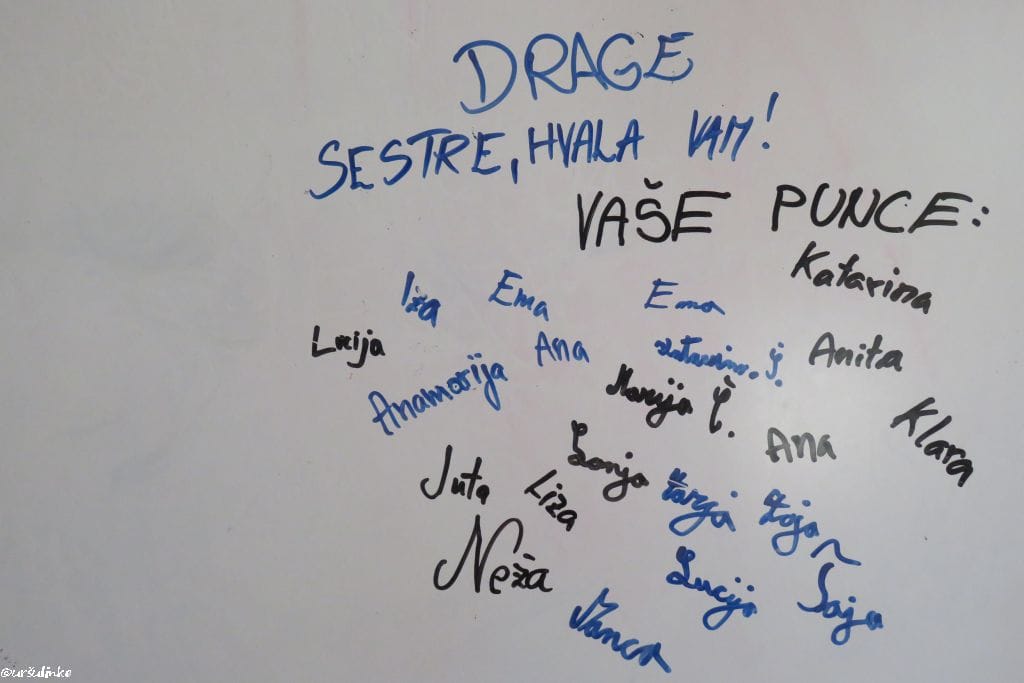 DRAGE
SESTRE, HVALA VAM!
VAŠE PUNCE:
Katarina
Iza
Ema
Ema
Lucija
Ana
Anita
Anamarija
Marija Č.
Klara
Ana
Juta
Liza
Sonja
Zoja
Neža
Lucija
Manca
@uršulinke